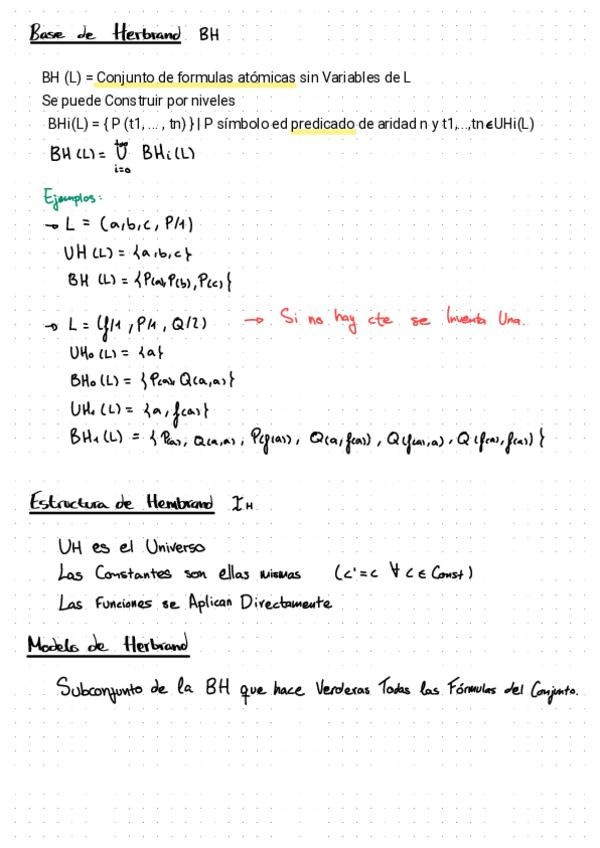 Base de Herbrand BH
BH (L) = Conjunto de formulas atómicas sin Variables de L
Se puede Construir por niveles
BHi(L) = { P (t1, ... , tn) } | P símbolo ed predicado de aridad n y t1,...,tn ∈ UHi(L)
BH (L) = ∪ i=0 +∞ BHi(L)
Ejemplos:
→ L = (a,b,c, P/1)
UH (L) = {a,b,c}
BH (L) = {P(a), P(b), P(c)}
→ L = (f/1, P/1, Q/2) → Si no hay cte se Inventa Una.
UH₀ (L) = {a}
BH₀ (L) = {P(a), Q(a,a)}
UH₁ (L) = {a, f(a)}
BH₁ (L) = {P(a), Q(a,a), P(f(a)), Q(a,f(a)), Q(f(a),a), Q(f(a),f(a))}
Estructura de Hembrand I H
UH es el Universo
Las Constantes son ellas mismas (c'=c ∀ c ∈ Const)
Las Funciones se Aplican Directamente
Modelo de Herbrand
Subconjunto de la BH que hace Verderas Todas las Fórmulas del Conjunto.